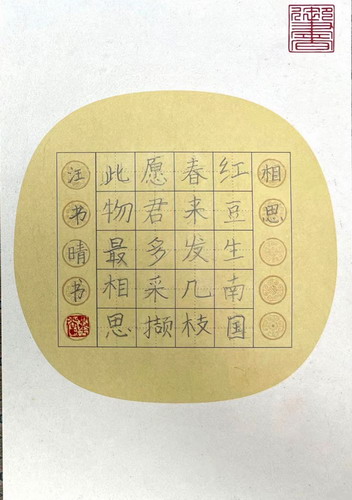 相思
红豆生南国
春来发几枝
愿君多采撷
此物最相思
汪书晴书